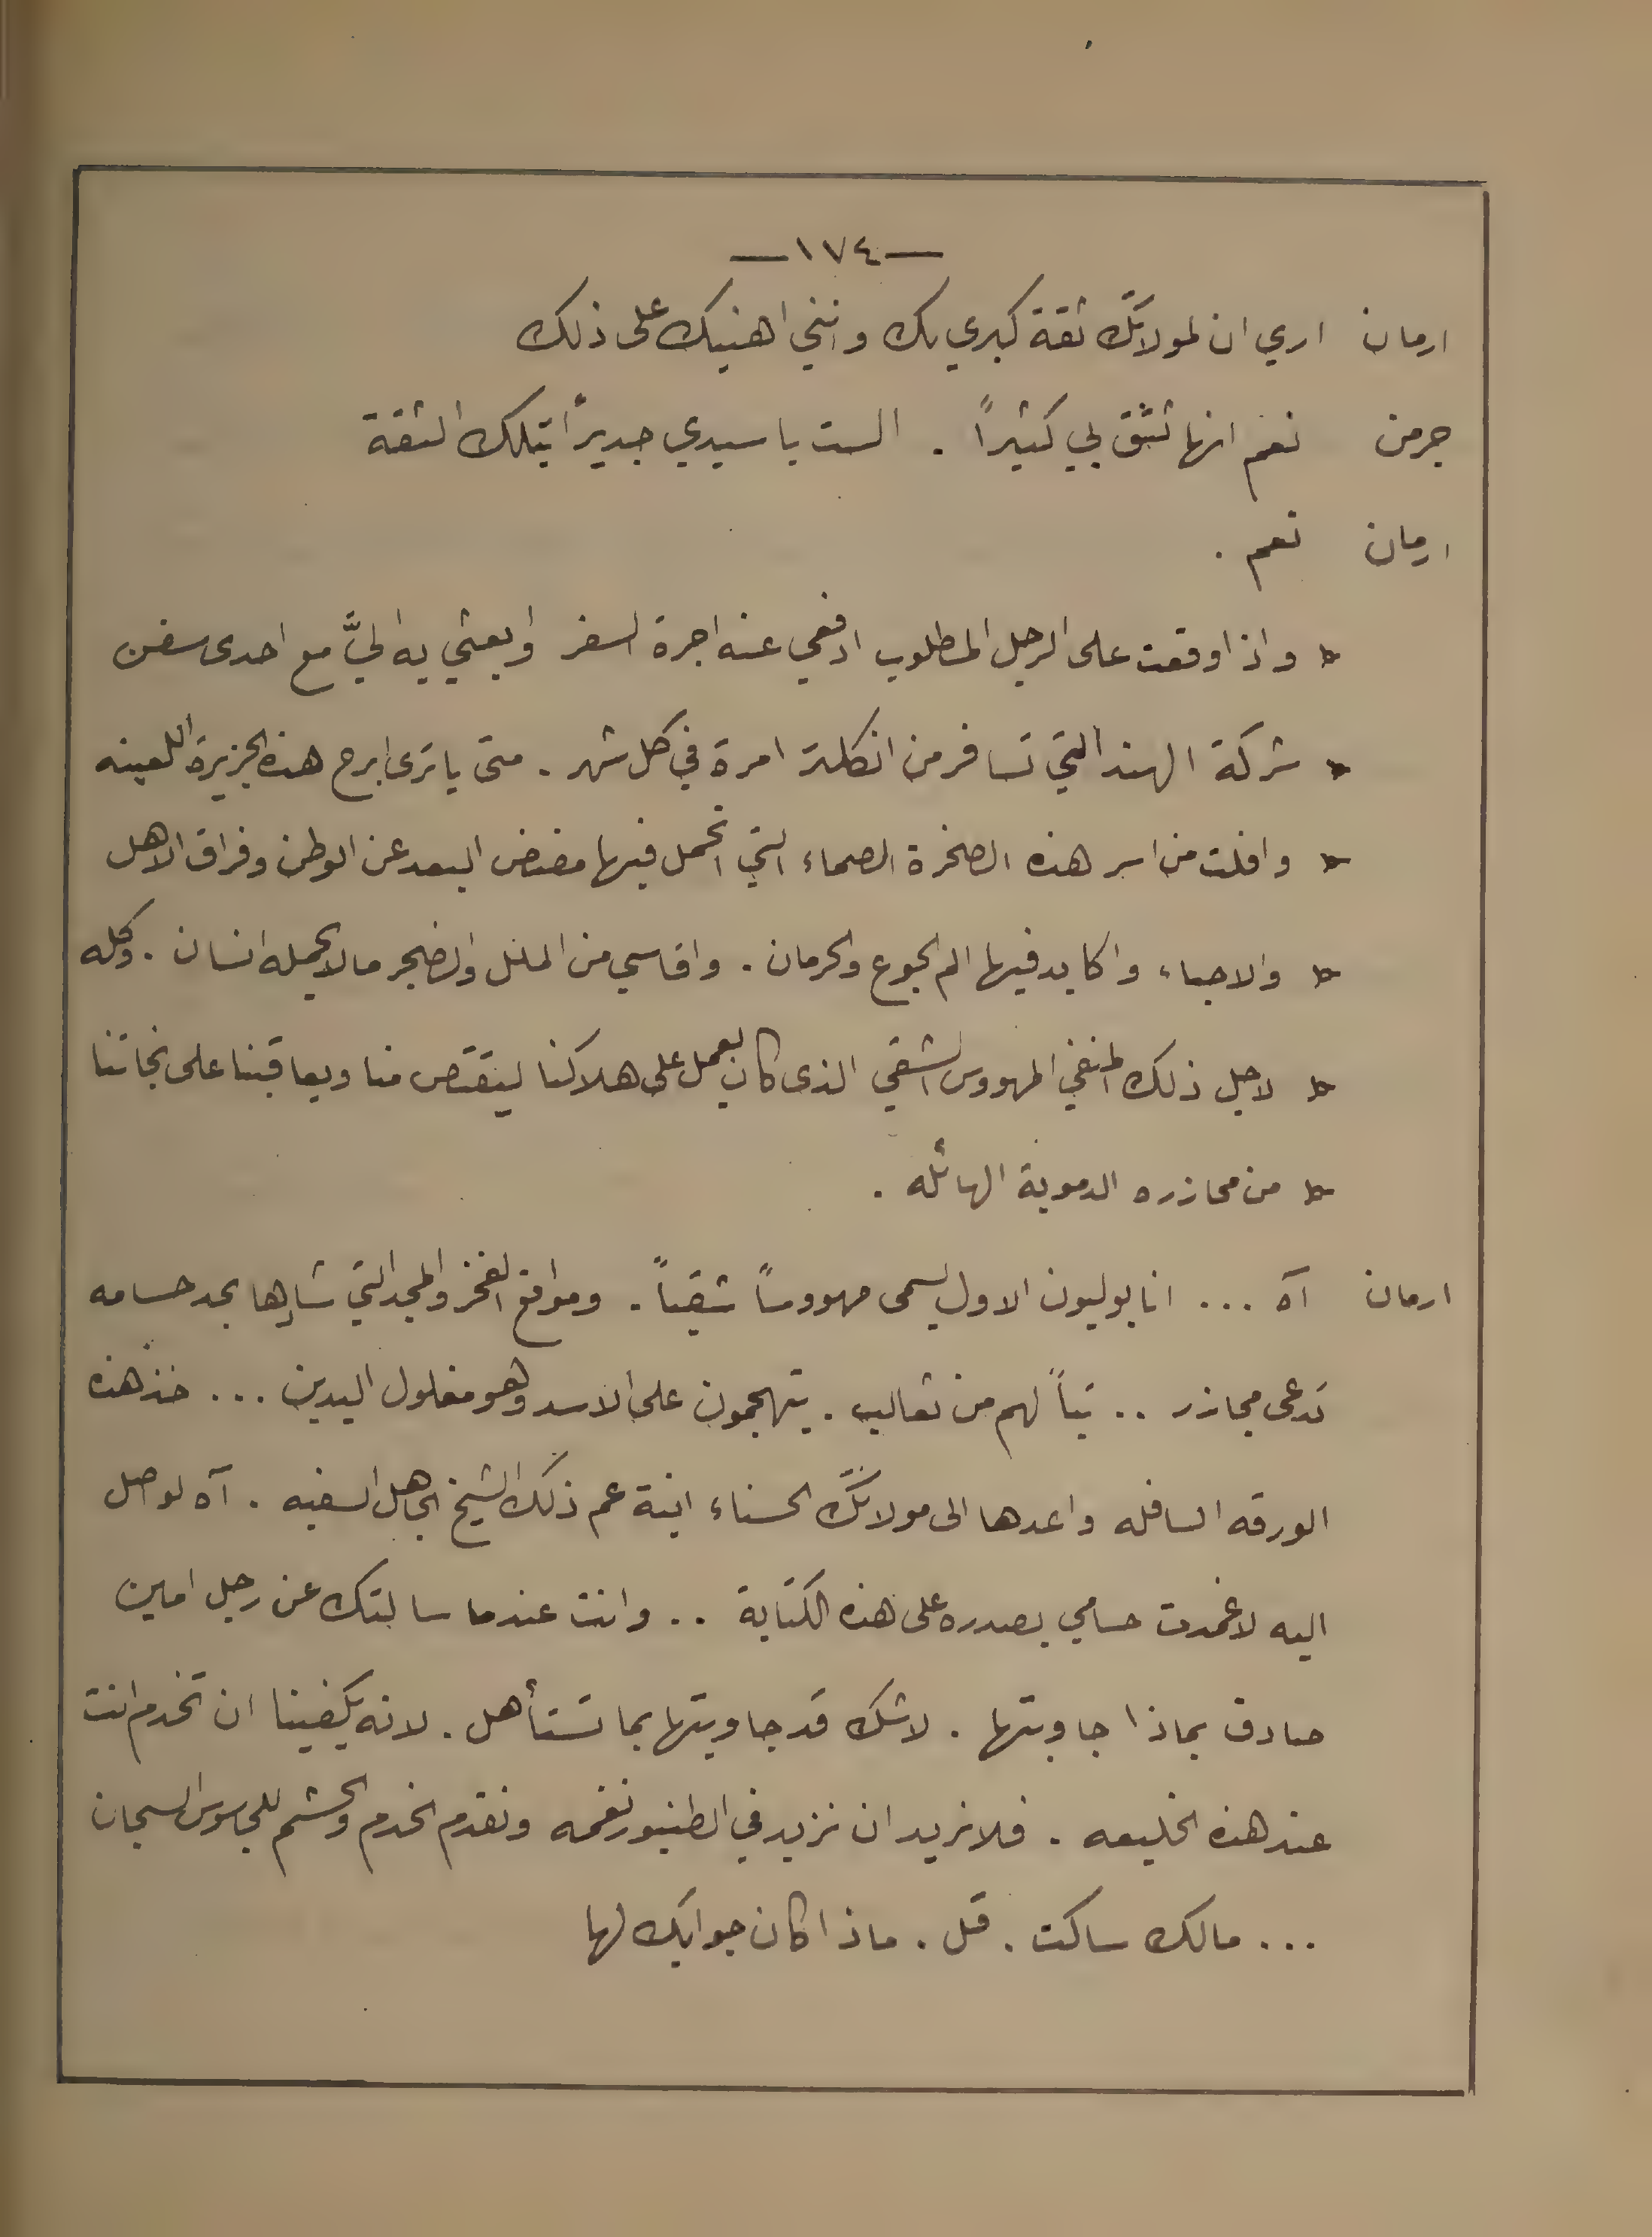 —١٧٤—
ارمان اري ان لمولاتك ثقة كبري بك وانني اهنيك على ذلك
جرمن نعم انها تثق بي كثيراً . الست يا سيدي جديراً بتلك الثقة
ارمان نعم .
« واذا وقعت على الرجل المطلوب ادفعي عنه اجرة السفر وابعثي به اليَّ مع احدى سفن
« شركة الهند التي تسافر من انكلترا مرة في كل شهر . متى يا ترى ابرح هذه الجزيرة اللعينه
« وافلت من اسر هذه الصخرة الصماء التي اتحمل فيها مضض البعد عن الوطن وفراق الاهل
« والاحباء واكابد فيها الم الجوع والحرمان . واقاسي من الملل والضجر مالا يحمله انسان . وكله
« لاجل ذلك المنفي المهووس الشقي الذى كان يعمل على هلاكنا ليقتص منا ويعاقبنا على نجاتنا
« من مجازره الدموية الهائله .
ارمان آه ... انابوليون الاول يسمى مهووساً شقياً . ومواقع الفخر والمجد التي شادها بحد حسامه
تدعى مجازر .. تباً لهم من ثعالب . يتهجمون على الاسد وهو مغلول اليدين ... خذ هذه
الورقه السافله واعدها الى مولاتك الحسناء ابنة عم ذلك الشيخ الجاهل السفيه . آه لو اصل
اليه لاغمدت حسامي بصدره على هذه الكتابة .. وانت عندما سالتك عن رجل امين
صادق بماذا جاوبتها . لاشك قد جاوبتها بما تستأهل . لانه يكفينا ان تخدم انت
عند هذه الخليعه . فلا نريد ان نزيد في الطنبور نغمه ونقدم الخدم والحشم للجاسوس السجان
... مالك ساكت . قل . ماذا كان جوابك لها